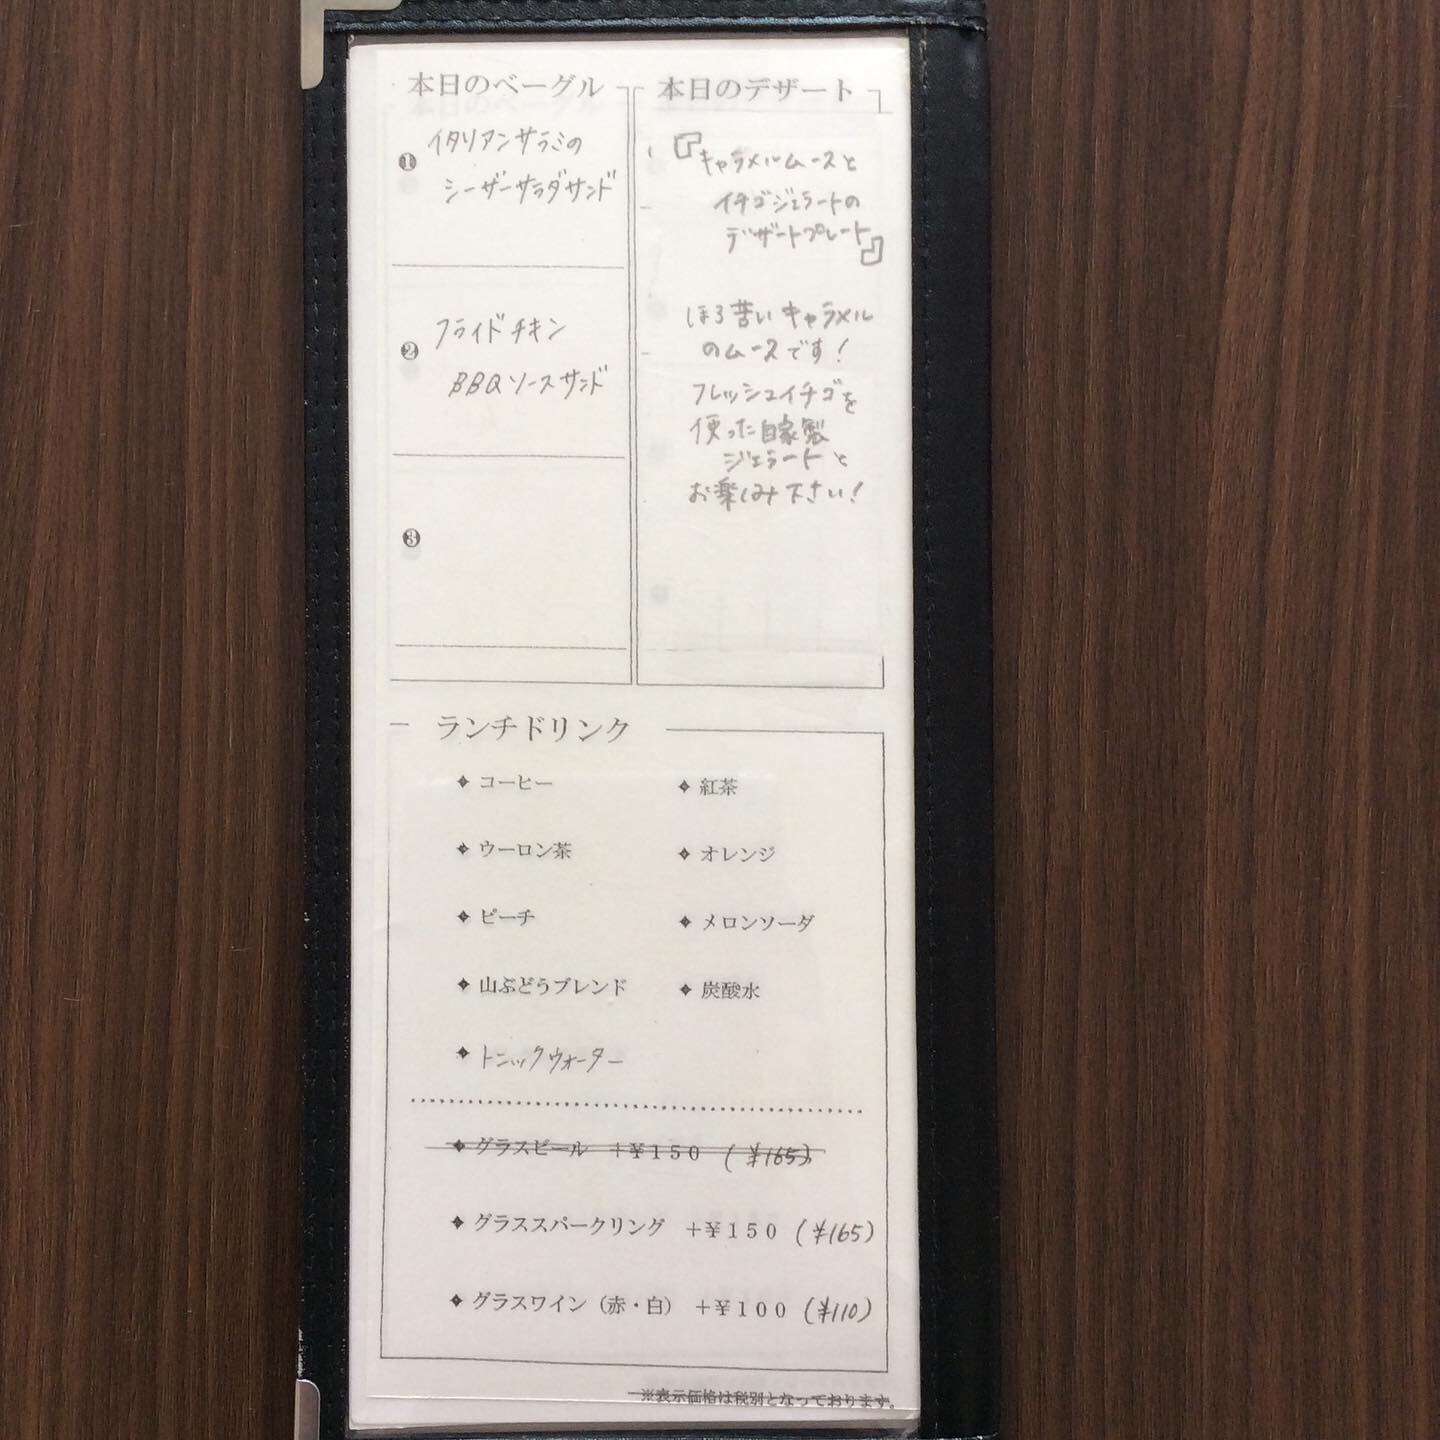 本日のベーグル
❶ イタリアンサラミの
シーザーサラダサンド
❷ フライドチキン
BBQソースサンド
❸
本日のデザート
『キャラメルムースと
イチゴジェラートの
デザートプレート』
ほろ苦いキャラメル
のムースです!
フレッシュイチゴを
使った自家製
ジェラートと
お楽しみ下さい!
ランチドリンク
コーヒー
紅茶
ウーロン茶
オレンジ
ピーチ
メロンソーダ
山ぶどうブレンド
炭酸水
トニックウォーター
グラスビール +¥150 (¥165)
グラススパークリング +¥150 (¥165)
グラスワイン(赤・白) +¥100 (¥110)
※表示価格は税別となっております。